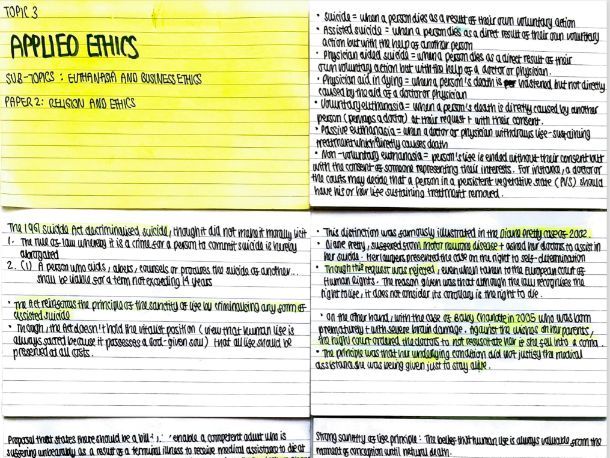 TOPIC 3
APPLIED ETHICS
SUB-TOPICS : EUTHANASIA AND BUSINESS ETHICS
PAPER 2: RELIGION AND ETHICS
• Suicide = when a person dies as a result of their own voluntary action
• Assisted suicide = when a person dies as a direct result of their own voluntary
action but with the help of another person
• Physician aided suicide = when a person dies as a direct result of their
own voluntary action but with the help of a doctor or physician.
• Physician aid in dying = when a person's death is hastened, but not directly
caused by the aid of a doctor or physician
• Voluntary euthanasia = when a person's death is directly caused by another
person (perhaps a doctor) at their request + with their consent.
• Passive euthanasia = when a doctor or physician withdraws life-sustaining
treatment which directly causes death
• Non-voluntary euthanasia = person's life is ended without their consent but
with the consent of someone representing their interests. For instance, a doctor or
the courts may decide that a person in a persistent vegetative state (PVS) should
have his or her life sustaining treatment removed.
The 1961 Suicide Act decriminalised suicide, though it did not make it morally licit
1. The rule of law whereby it is a crime for a person to commit suicide is hereby
abrogated
2. (1) A person who aids, abets, counsels or procures the suicide of another...
shall be liable for a term not exceeding 14 years
• The Act reinforces the principle of the sanctity of life by criminalising any form of
assisted suicide
• Though, the Act doesn't hold the vitalist position (view that human life is
always sacred because it possesses a God-given soul) that all life should be
preserved at all costs.
• This distinction was famously illustrated in the Diane Pretty case of 2002.
• Diane Pretty, suffered from motor neurone disease + asked her doctors to assist in
her suicide. Her lawyers presented the case on the right to self-determination
• Though this request was rejected, even when taken to the European Court of
Human Rights. The reason given was that although the law recognises the
right to life, it does not consider its corollary is the right to die.
• On the other hand, with the case of Baby Charlotte in 2005 who was born
prematurely + with severe brain damage. Against the wishes of her parents,
the high court ordered the doctors to not resuscitate her if she fell into a coma.
• The principle was that her underlying condition did not justify the medical
assistance she was being given just to stay alive.
Proposal that states there should be a bill enable a competent adult who is
suffering unbearably as a result of a terminal illness to receive medical assistance to die at
Strong sanctity of life principle: The belief that human life is always valuable from the
moment of conception until natural death.